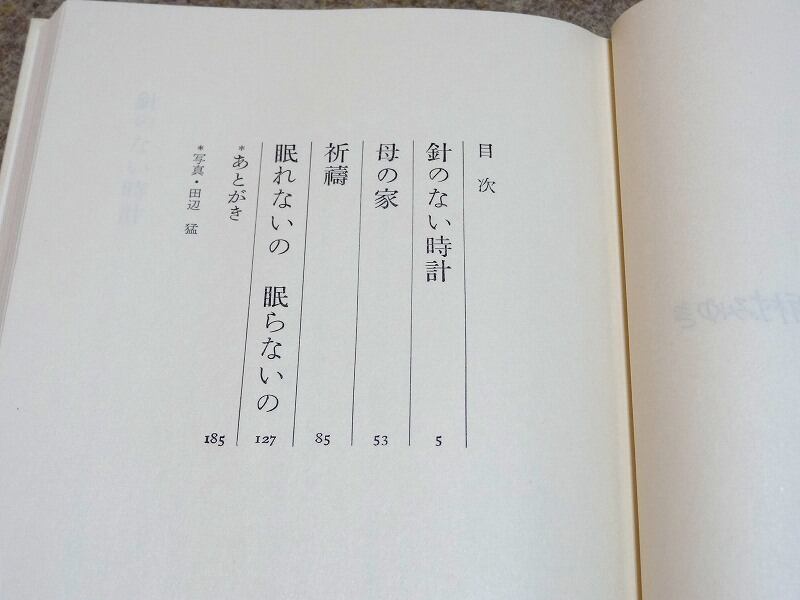 目次
針のない時計 5
母の家 53
祈禱 85
眠れないの 眠らないの 127
*あとがき 185
*写真・田辺 猛